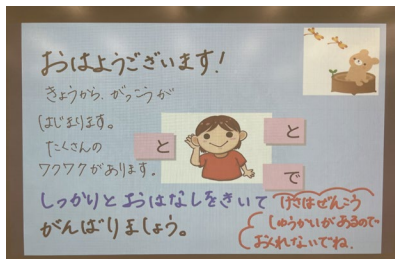 おはようございます!
きょうから、がっこうが
はじまります。
たくさんの
ワクワクがあります。
と
と
で
しっかりとおはなしをきいて
がんばりましょう。
けさはぜんこう
しゅうかいがあるので
おくれないでね.